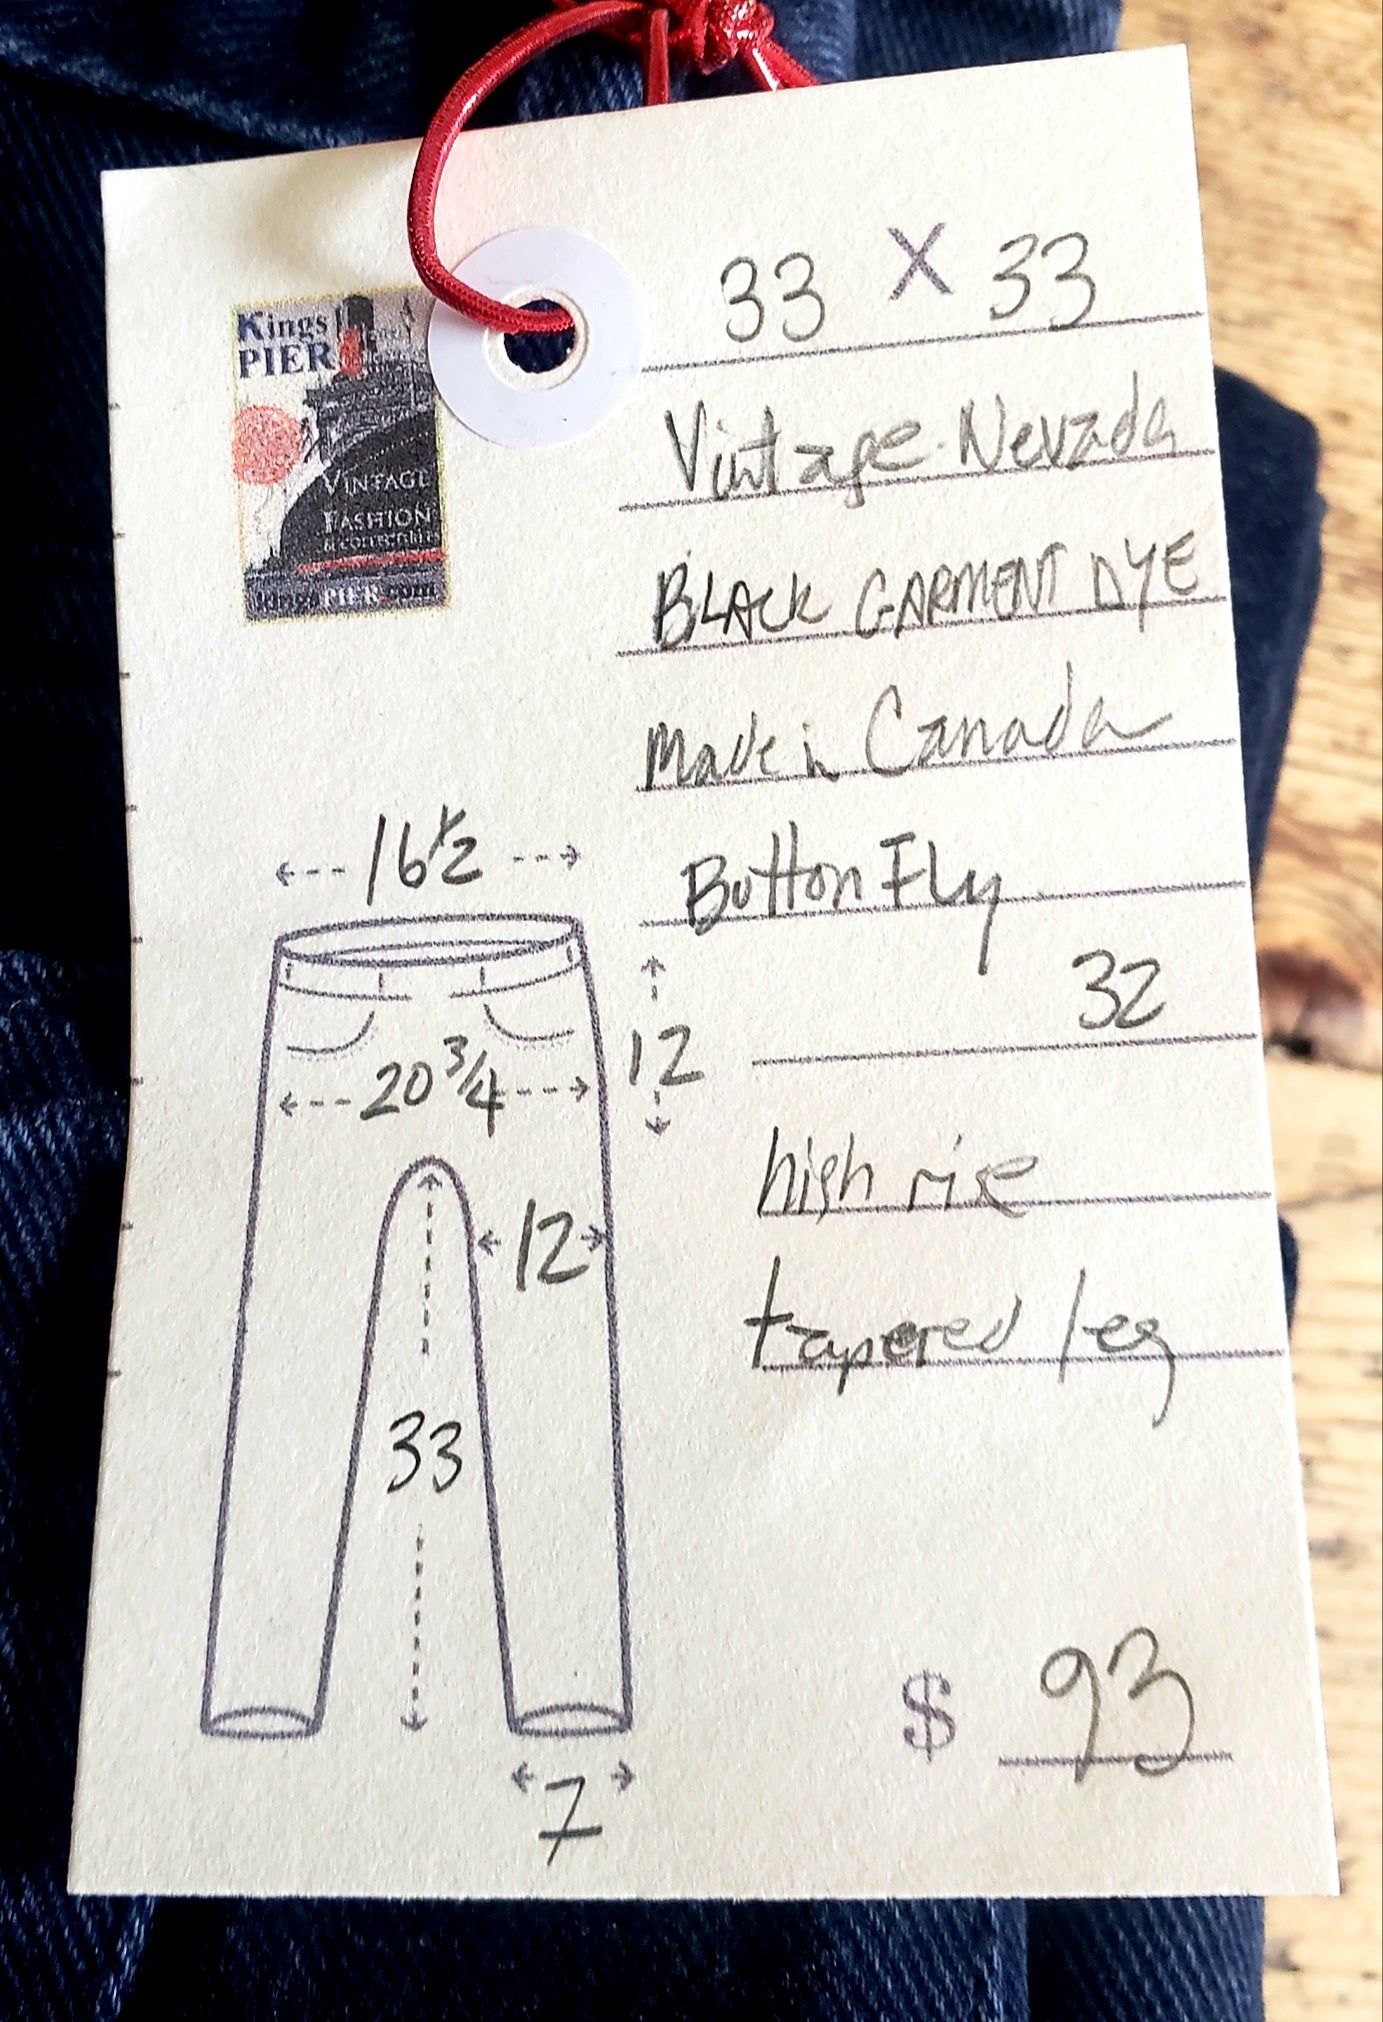 Kings
PIER
VINTAGE
FASHION
& COLLECTIBLES
KingsPIER.com
33 X 33
Vintage Nevada
BLACK GARMENT DYE
Made in Canada
Button Fly
32
high rise
tapered leg
16 1/2
20 3/4
12
12
33
7
$ 93